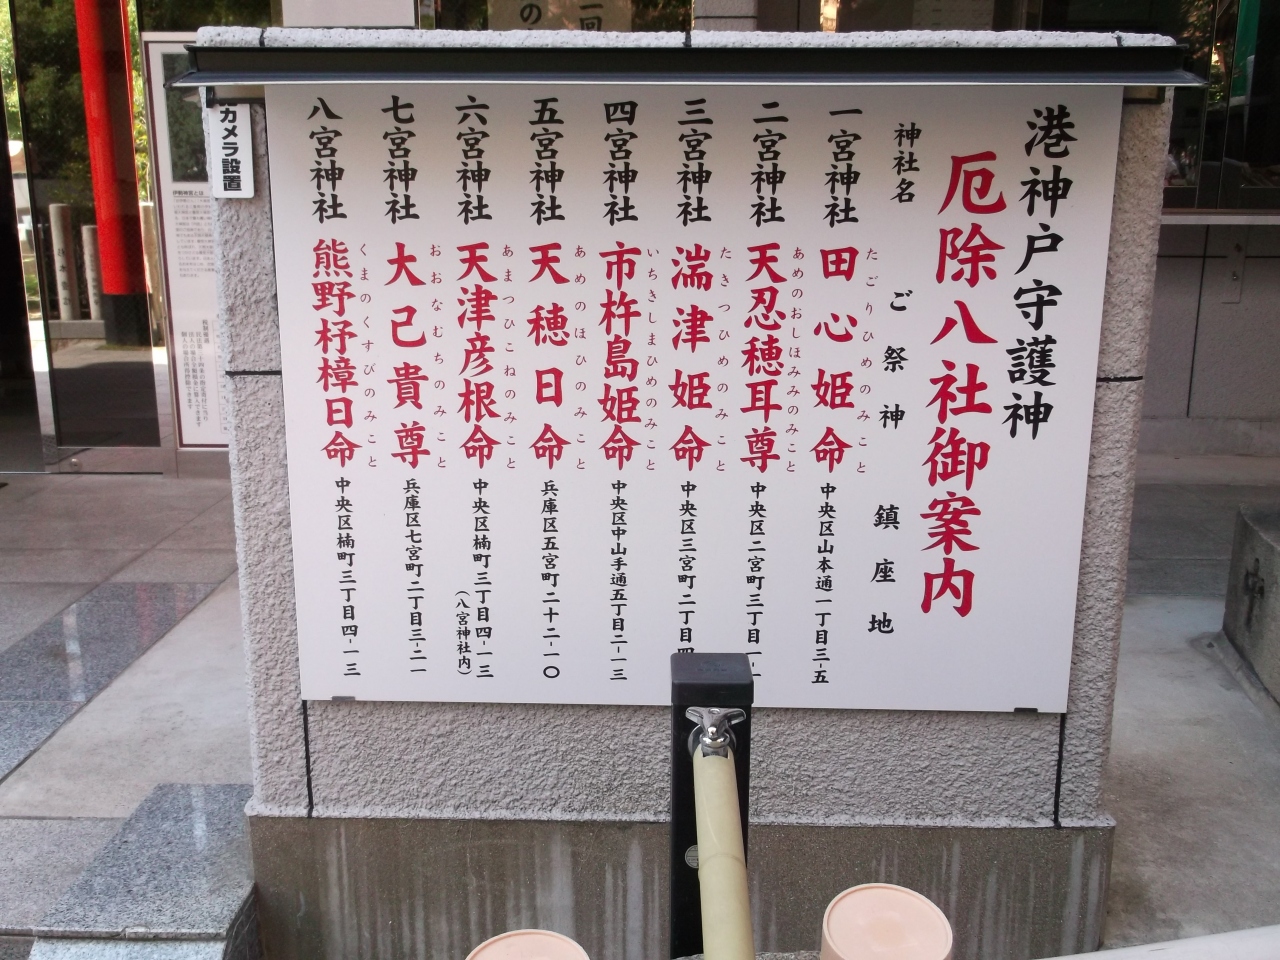 港神戸守護神
厄除八社御案内
神社名 ご祭神 鎮座地
一宮神社 田心姫命 中央区山本通一丁目三-五
たごりひめのみこと
二宮神社 天忍穂耳尊 中央区二宮町三丁目一-
あめのおしほみみのみこと
三宮神社 湍津姫命 中央区三宮町二丁目四
たきつひめのみこと
四宮神社 市杵島姫命 中央区中山手通五丁目二-一三
いちきしまひめのみこと
五宮神社 天穂日命 兵庫区五宮町二十二-一〇
あめのほひのみこと
六宮神社 天津彦根命 中央区楠町三丁目四-一三
(八宮神社内)
あまつひこねのみこと
七宮神社 大己貴尊 兵庫区七宮町二丁目三-二一
おおなむちのみこと
八宮神社 熊野杼樟日命 中央区楠町三丁目四-一三
くまのくすびのみこと
カメラ設置